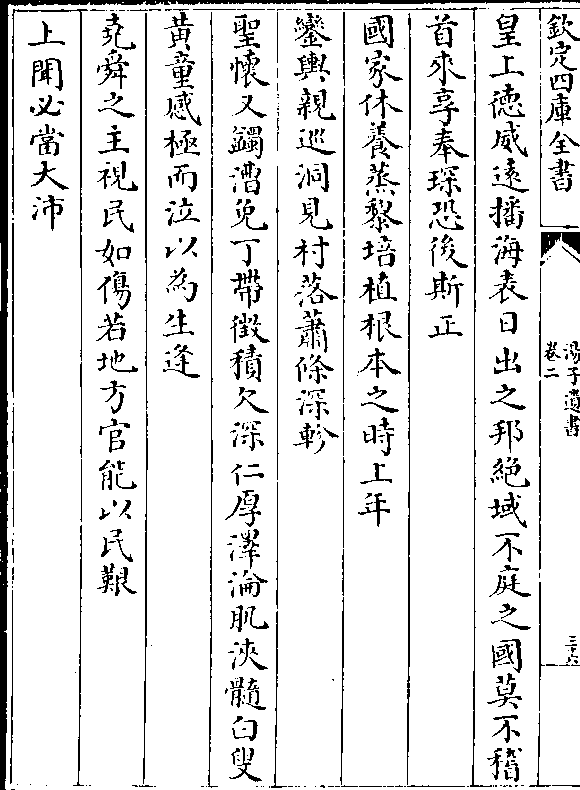 欽定四庫全書
湯子遺書
卷二
三十六
皇上德威遠播海表日出之邦絶域不庭之國莫不稽
首來享奉琛恐後斯正
國家休養蒸黎培植根本之時上年
鑾輿親巡洞見村落蕭條深軫
聖懷又蠲漕免丁帶徵積欠深仁厚澤淪肌浹髓白叟
黃童感極而泣以為生逢
堯舜之主視民如傷若地方官能以民艱
上聞必當大沛